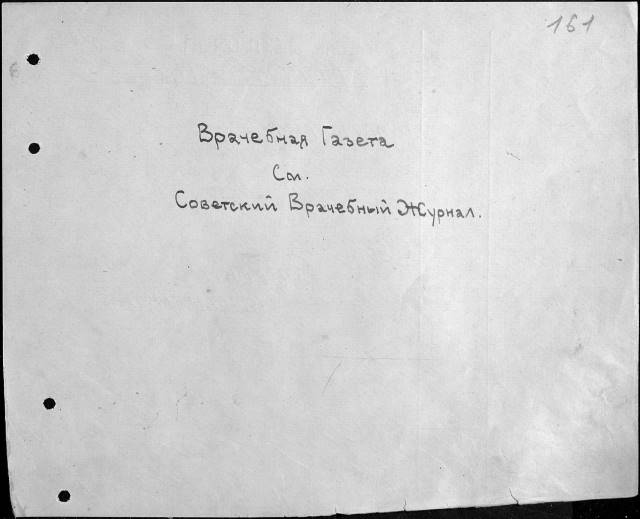 151
Врачебная Газета
См.
Советский Врачебный Журнал.